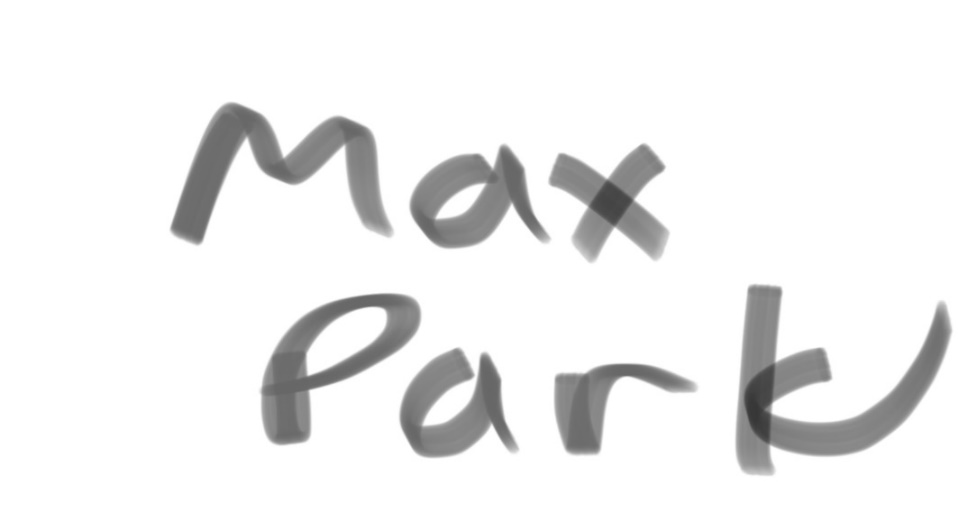 Max
Park